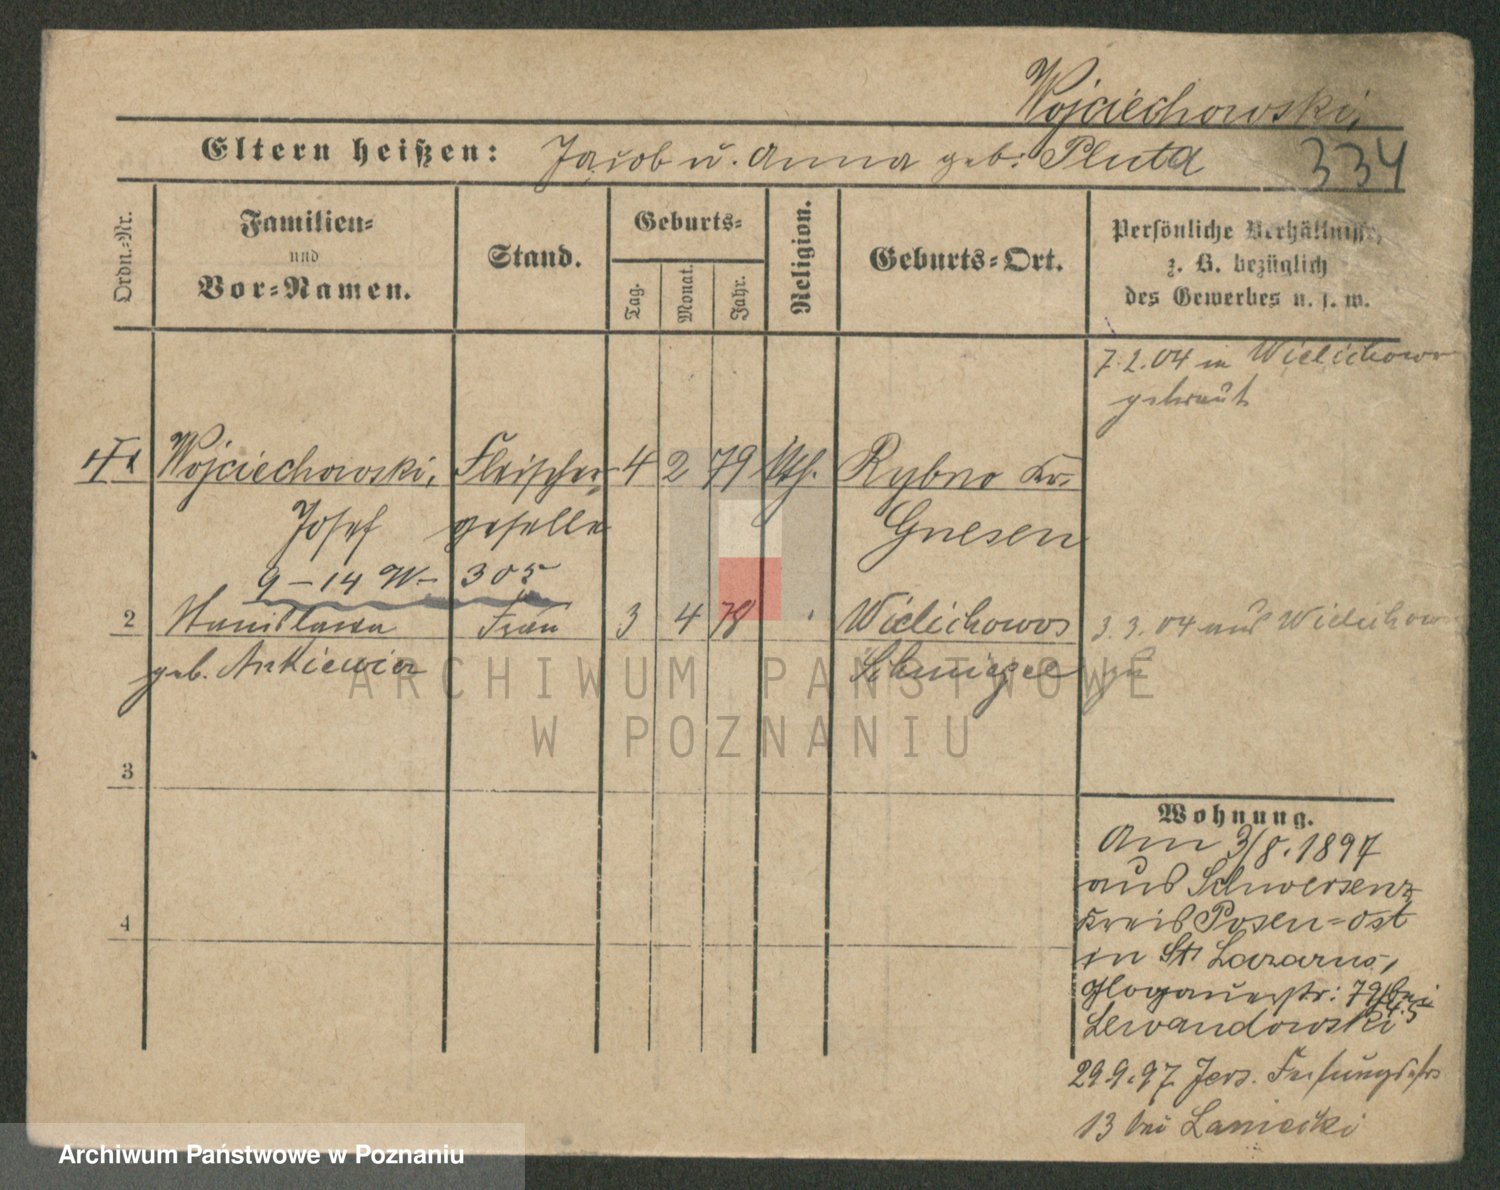 Wojciechowski,
Eltern heißen: Jacob u. Anna geb: Pluta
334
Ordn.-Nr.
Familien-
und
Vor-Namen.
Stand.
Geburts-
Tag.
Monat.
Jahr.
Religion.
Geburts-Ort.
Persönliche Verhältnisse,
z. B. bezüglich
des Gewerbes u. s. w.
7.2.04 in Wielichowo
getraut
Wojciechowski, Fleischer- 4 2 79 kth. Rybno Krs.
Josef geselle Gnesen
9-14 W- 305
2 Stanislawa Frau 3 4 78 Wielichowo 3.3.04 aus Wielichowo
geb. Schmiegel
ARCHIWUM PAŃSTWOWE
W POZNANIU
3
4
Wohnung.
Am 3/8. 1897
aus Schwersenz
Kreis Posen-Ost
in St. Lazarus,
Glogauerstr: 79 bei
Lewandowski
29.9.97. Jers.
13 bei Laniecki
Archiwum Państwowe w Poznaniu